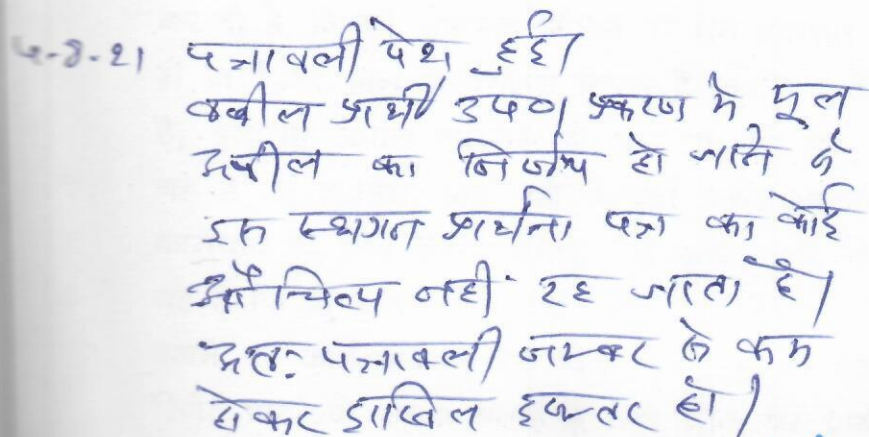 5-8-21 पत्रावली पेश हुई।
वकील प्रार्थी उप०। प्रकरण में मूल
अपील का निर्णय हो जाने से
इस स्थगन प्रार्थना पत्र का कोई
औचित्य नहीं रह जाता है।
अतः पत्रावली नम्बर से कम
होकर दाखिल दफ्तर हो।